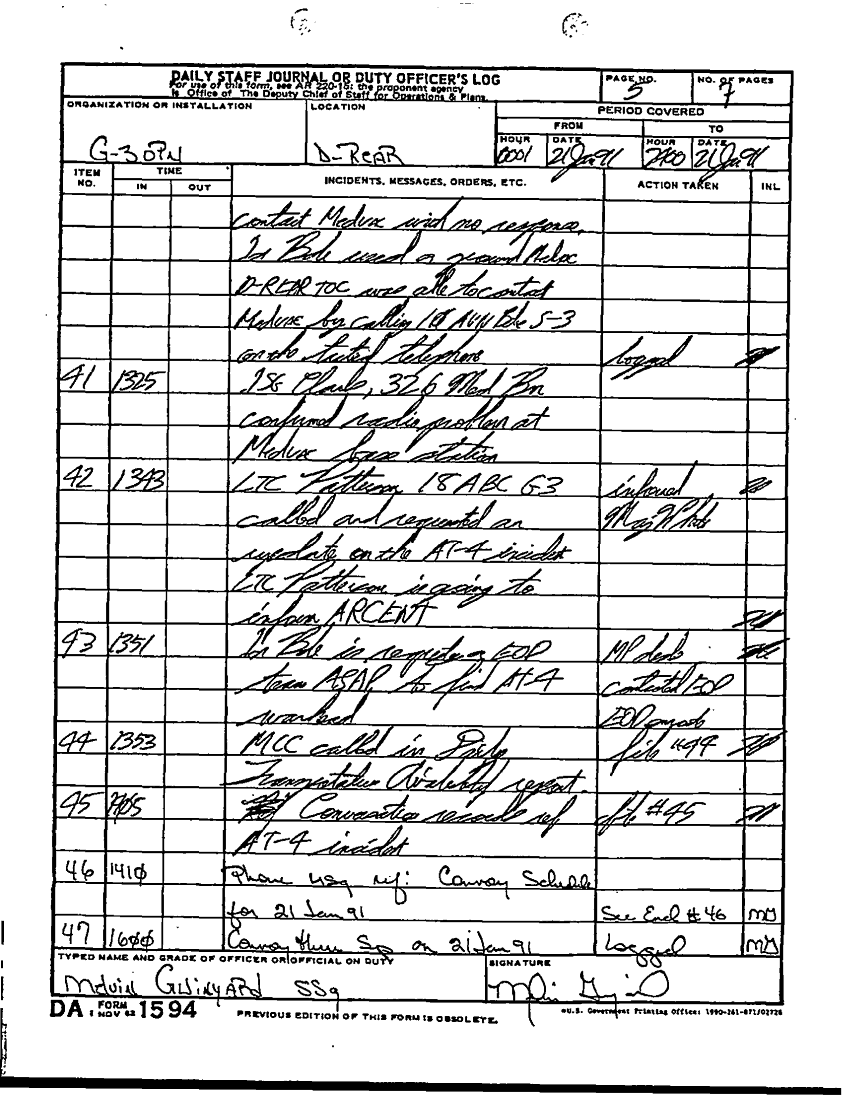 DAILY STAFF JOURNAL OR DUTY OFFICER'S LOG
For use of this form, see AR 220-15; the proponent agency
is Office of The Deputy Chief of Staff for Operations & Plans.
PAGE NO.
5
NO. OF PAGES
7
ORGANIZATION OR INSTALLATION
G-3 OPN
LOCATION
D-REAR
PERIOD COVERED
FROM
TO
HOUR
0001
DATE
21 Jan 91
HOUR
2400
DATE
21 Jan 91
ITEM NO.
TIME
IN
OUT
INCIDENTS, MESSAGES, ORDERS, ETC.
ACTION TAKEN
INL
contact Medevac with no response.
1st Bde used a ground
D-REAR TOC was able to contact
Medevac by calling Bde S-3
on the telephone logged
41 1325 1SG 326 Med Bn
confirmed radio problem at
Medevac base station
42 1343 LTC Patterson 18 ABC G3 informed
called and requested an Maj
update on the AT-4 incident
LTC Patterson is going to
inform ARCENT
43 1351 1st Bde is requesting EOD MP desk
team ASAP to find AT-4 contacted EOD
warhead EOD
44 1353 MCC called in Daily file #44
Transportation Availability report.
45 1405 Conversation records ref #45
AT-4 incident
46 1410 Phone msg ref: Convoy Schedule
for 21 Jan 91 See Encl #46 MG
47 1600 Convoy thru Sp on 21 Jan 91 Logged MG
TYPED NAME AND GRADE OF OFFICER OR OFFICIAL ON DUTY
Melvin Gwinyard SSg
SIGNATURE
DA FORM 1594
1 NOV 62
PREVIOUS EDITION OF THIS FORM IS OBSOLETE.
U.S. Government Printing Office: 1990-261-871/02726